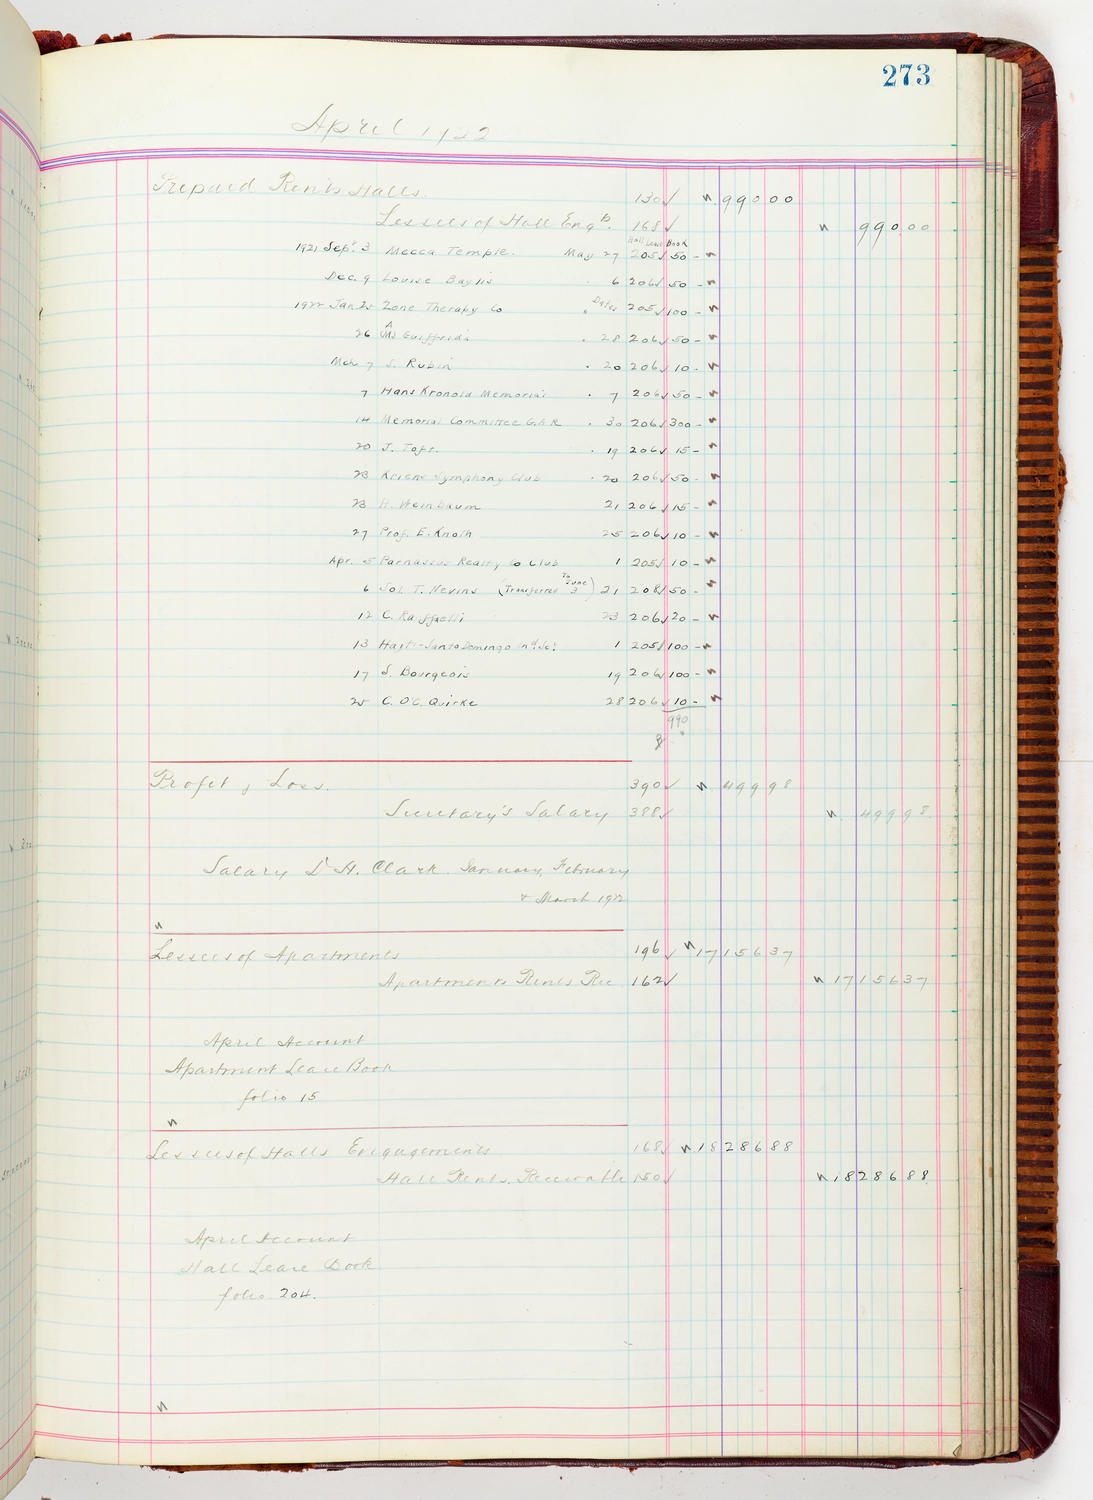 273
April 1922
Prepaid Rents Halls. 130 990 00
Lessees of Hall Eng.ts 168 990 00
Hall Lease Book
1921 Sept. 3 Mecca Temple. May 27 205 50 -
Dec. 9 Louise Baylis 6 206 50 -
1922 Jan 25 Zone Therapy Co Dates 205 100 -
26 Guiffrida 28 206 50 -
Mch 7 S. Rubin 20 206 10 -
7 Hans Kronold Memorial 7 206 50 -
14 Memorial Committee G.A.R 30 206 300 -
20 J. Toft. 19 206 15 -
23 Kriens Symphony Club 20 206 50 -
23 H. Weinbaum 21 206 15 -
27 Prof. E. Knoth 25 206 10 -
Apr. 5 Parnassus Realty Co Club 1 205 10 -
6 Sol. T. Nevins (Transferred To June 3) 21 208 50 -
12 C. Raffaelli 23 206 20 -
13 Haiti-Santo Domingo Ind. Sc. 1 205 100 -
17 S. Bourgeois 19 206 100 -
25 C. O'C. Quirke 28 206 10 -
990
Profit & Loss. 390 499 98
Secretary's Salary 388 499 98
Salary L H. Clark. January, February
& March 1922
Lessees of Apartments 196 17156 37
Apartments Rents Rec 162 17156 37
April Account
Apartment Lease Book
folio 15
Lessees of Halls Engagements 168 18286 88
Hall Rents. Receivable 150 18286 88
April Account
Hall Lease Book
folio 204.